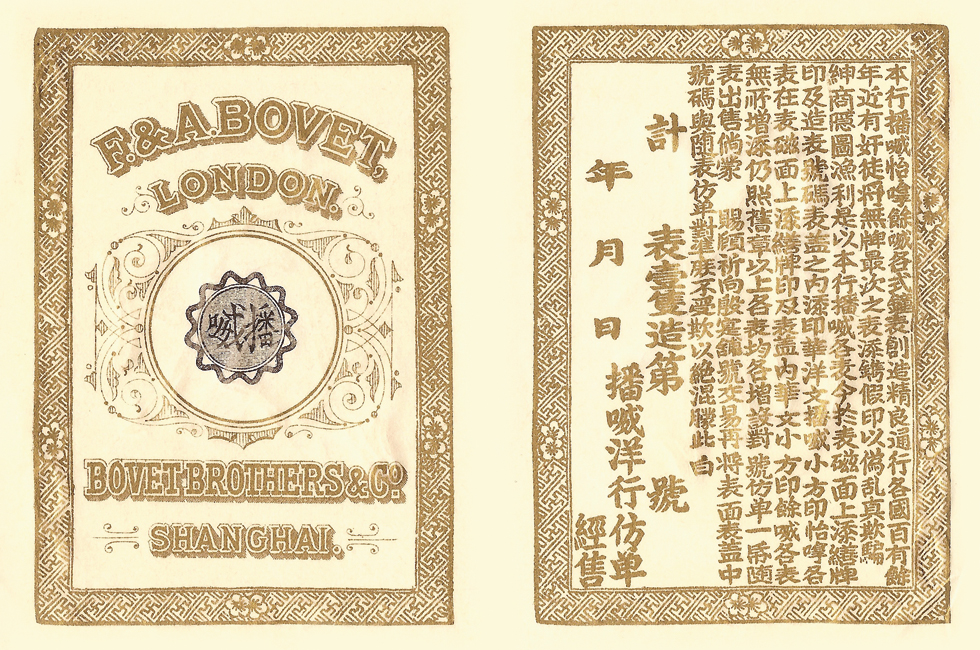 F.&A.BOVET,
LONDON.
播喴
BOVET BROTHERS & Co.
SHANGHAI.
本行播喴怡嘩餘喴各式鐘表創造精良通行各國百有餘
年近有奸徒将無牌最次之表添鐫假印以偽乱真欺騙
紳商隱圖漁利是以本行播喴各表今於表磁面上添繕牌
印及造表號碼表盖之内添印華洋文播喴小方印怡嘩各
表在表磁面上添繕牌印及表盖内華文小方印餘喴各表
無所增添仍照舊章以上各表均各增設對號仿单一帋随
表出售倘蒙 賜顧祈向殷寔舖號交易再将表面表盖中
號碼與随表仿单對準庶不受欺以絶混騰此白
計 表壹隻造第 號
年 月 日 播喴洋行仿单
經售